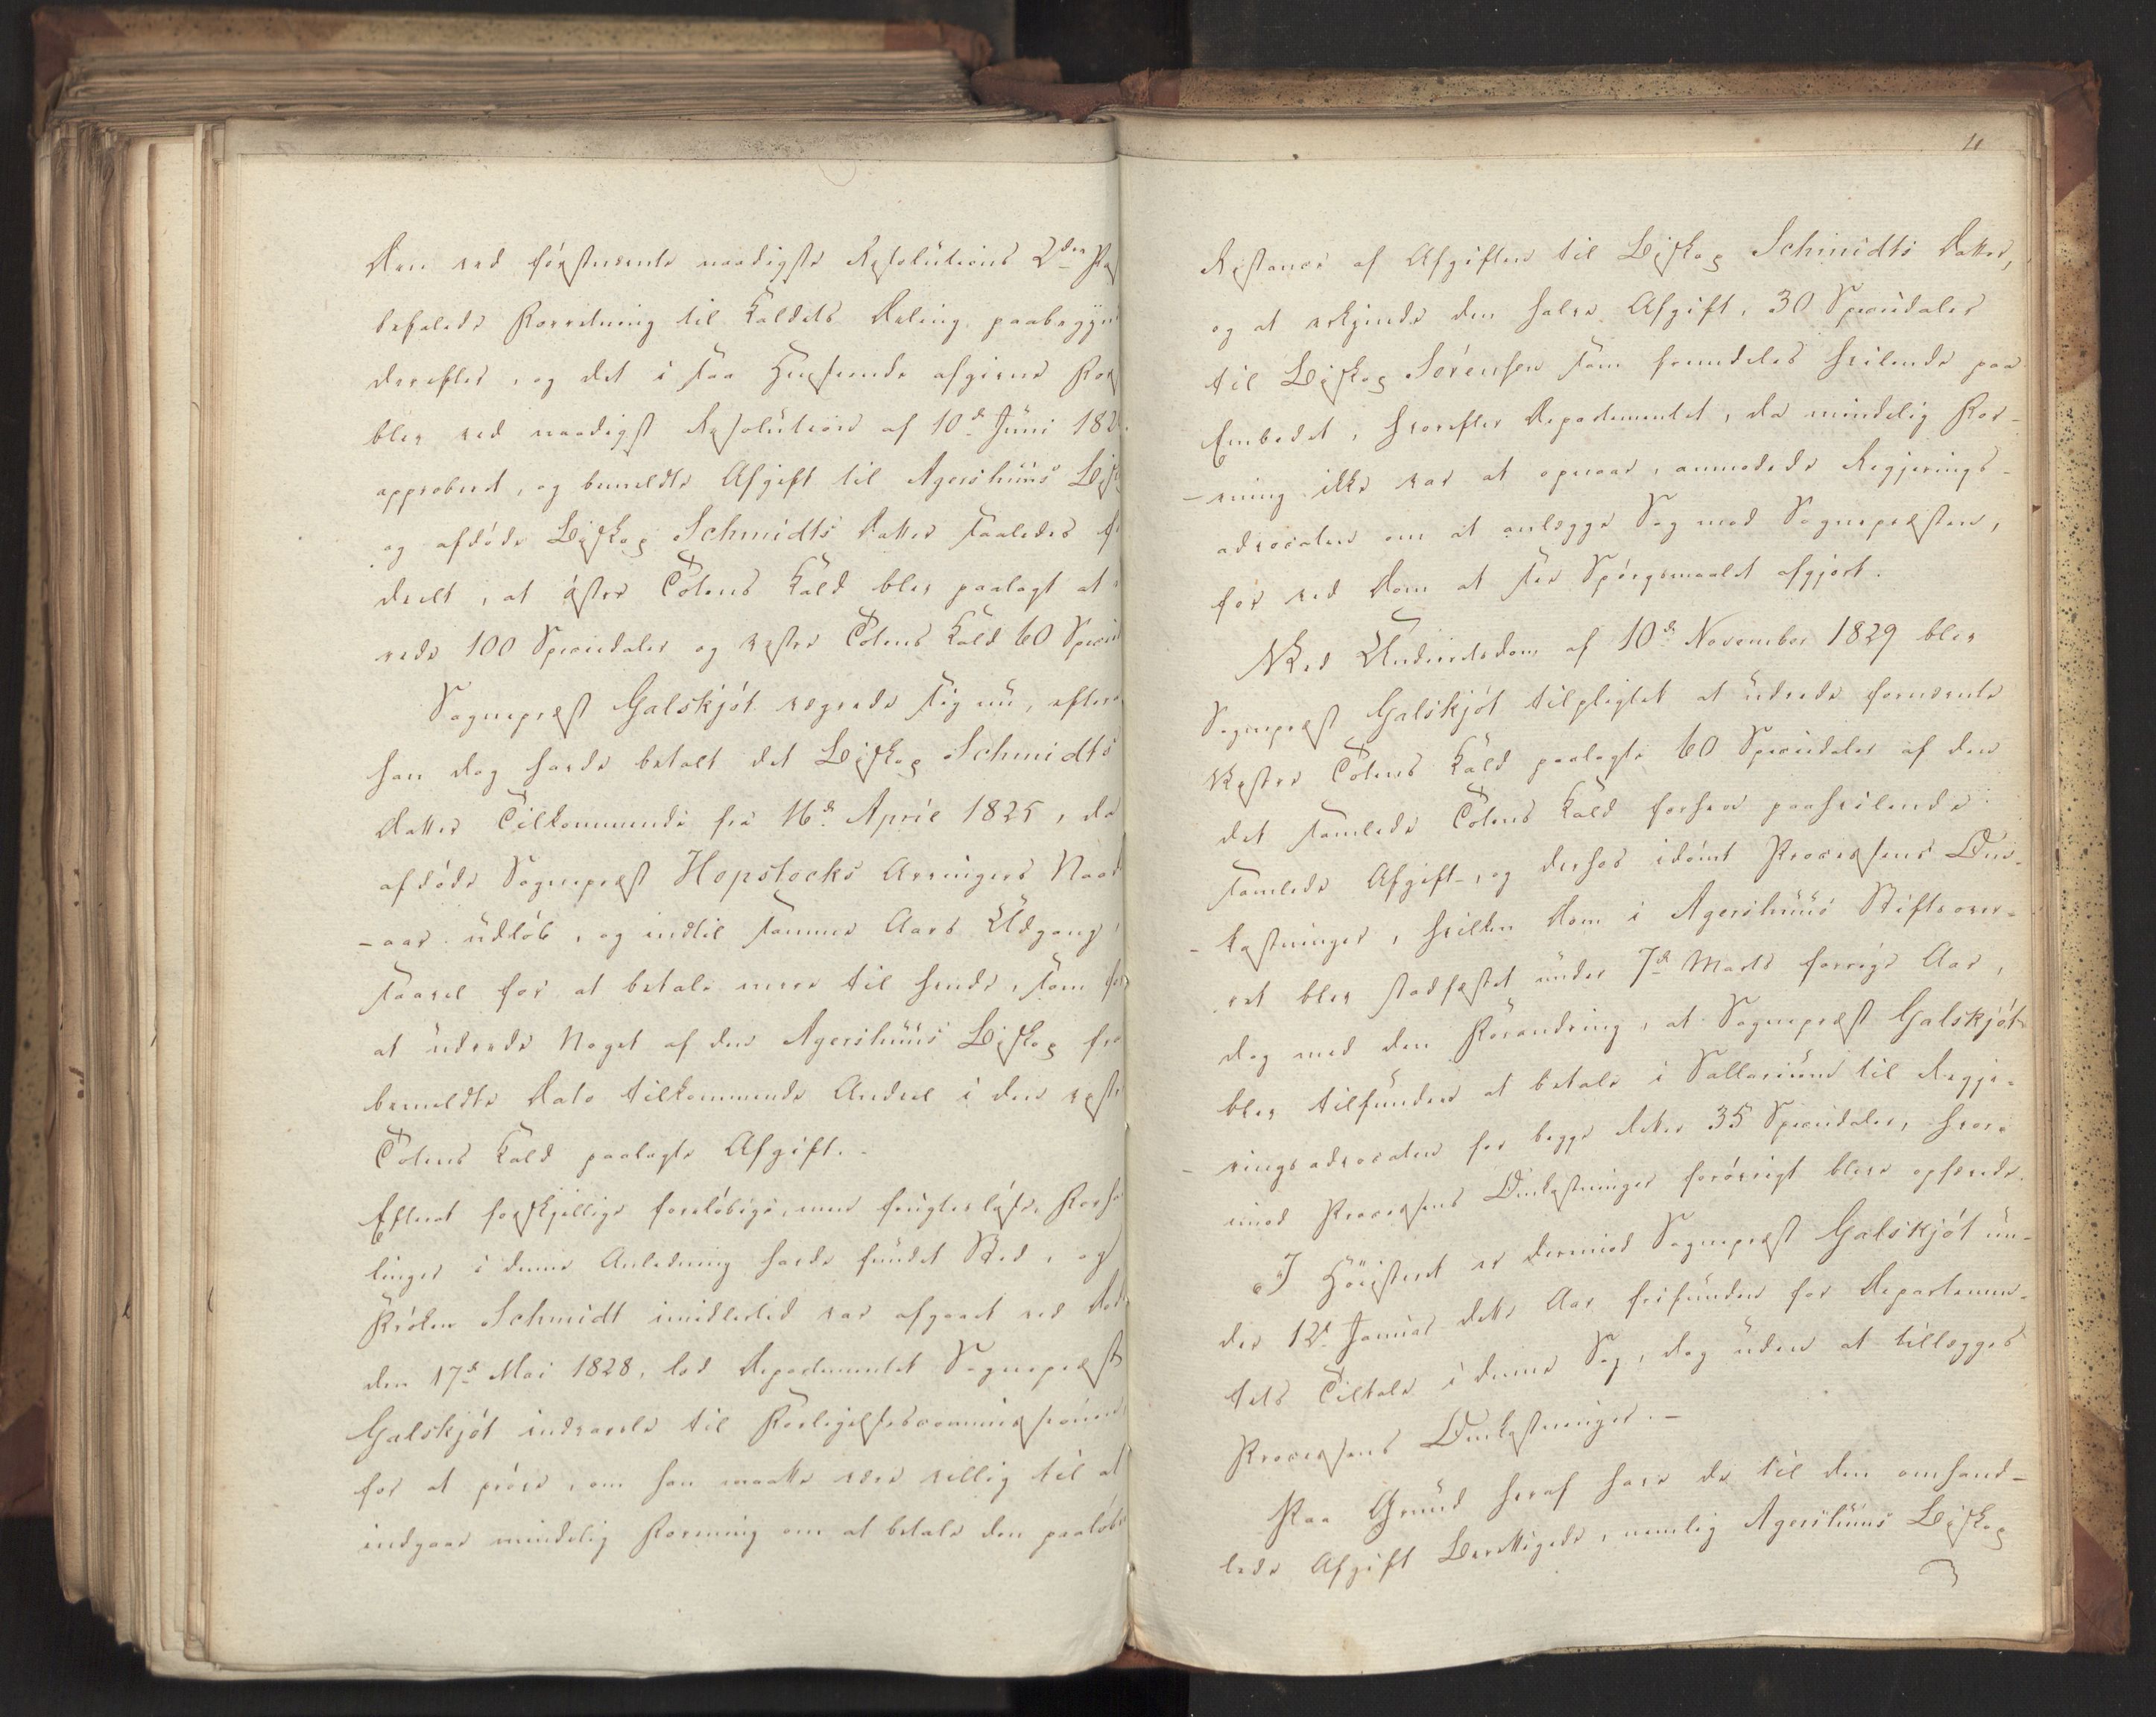 Den ved førstnævnte naadigste Resolutions 2den Pos
befalede Forretning til Kaldets Deling paabegyn
derefter, og det i saa Henseende afgivne For
blev ved naadigst Resolution af 10de Juni 182
approberet, og bemeldte Afgift til Agershuus Bis
og afdøde Biskop Schmidts Datter saaledes f
deelt, at østre Totens Kald blev paalagt at
rede 100 Speciedaler og vestre Totens Kald 60 Specie
Sognepræst Galskjöt vægrede sig nu, efter
han dog havde betalt det Biskop Schmidts
Datter Tilkommende fra 16de April 1825, da
afdøde Sognepræst Hopstocks Arvingers Naad
-aar udløb, og indtil samme Aars Udgang,
saavel for at betale mere til hende, som for
at udrede Noget af den Agershuus Biskop fra
bemeldte Dato tilkommende Andeel i den vestre
Totens Kald paalagte Afgift.
Efterat forskjellige foreløbige, men frugtesløse, Forha
linger i denne Anledning havde fundet Sted, og
Frøken Schmidt imidlertid var afgaaet ved Dø
den 17de Mai 1828, lod Departementet Sognepræst
Galskjöt indvarsle til Forligelsescommissionen
for at prøve, om han maatte være villig til at
indgaae mindelig Forening om at betale den paaløb
11
Restance af Afgiften til Biskop Schmidts Datter,
og at erkjende den halve Afgift, 30 Speciedaler
til Biskop Sörensen som fremdeles hvilende paa
Embedet, hvorefter Departementet, da mindelig For-
-ening ikke var at opnaae, anmodede Regjerings-
advocaten om at anlægge Sag mod Sognepræsten,
for ved Dom at see Spørgsmaalet afgjort.
Ved Underretsdom af 10de November 1829 blev
Sognepræst Galskjöt tilpligtet at udrede fornævnte
Vestre Totens Kald paalagte 60 Speciedaler af den
det samlede Totens Kald forhen paahvilende
samlede Afgift, og derhos idømt Processens Om-
-kostninger, hvilken Dom i Agershuus Stiftsover-
ret blev stadfæstet under 7de Marts forrige Aar,
dog med den Forandring, at Sognepræst Galskjöt
blev tilfunden at betale i Sallarium til Regje-
-ringsadvocaten for begge Retter 35 Speciedaler, hvor-
imod Processens Omkostninger forøvrigt bleve ophævede.
I Höiesteret er derimod Sognepræst Galskjöt un-
der 12te Januar dette Aar frifunden for Departemen-
tets Tiltale i denne Sag, dog uden at tillægges
Processens Omkostninger. -
Paa Grund heraf have de til den omhand-
lede Afgift Berettigede, nemlig Agershuus Biskop